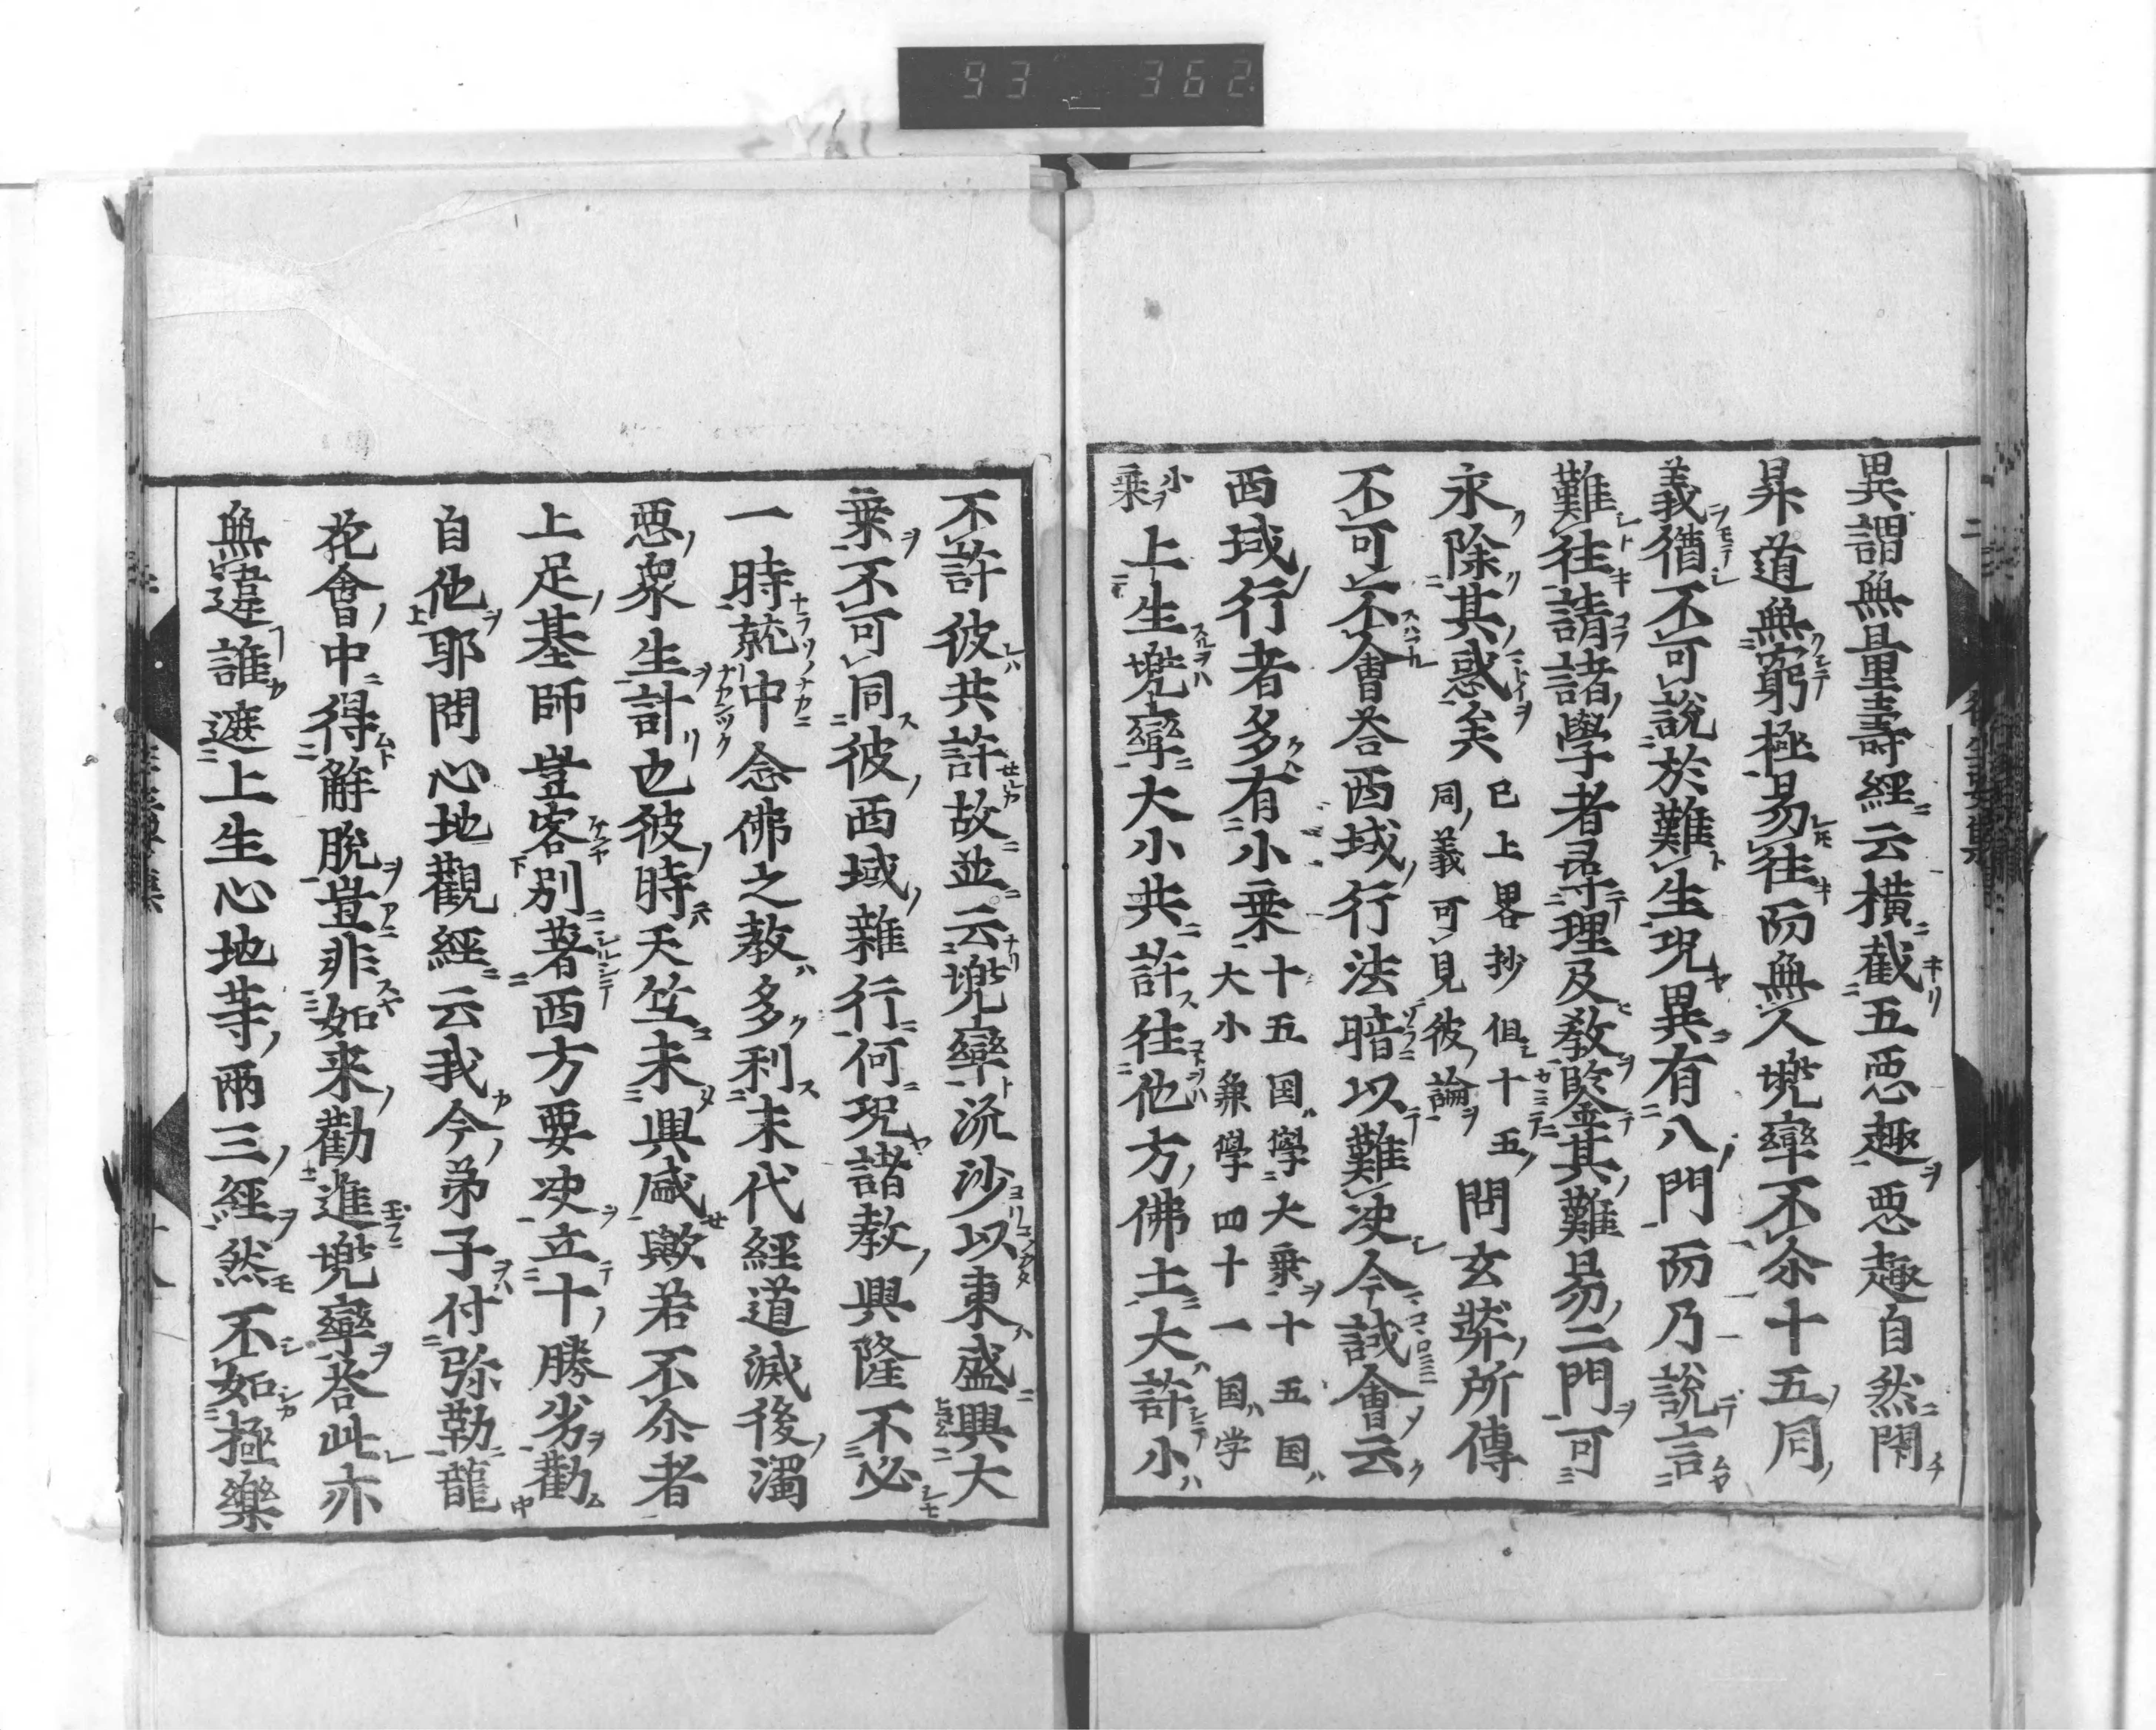 93 362
異謂無量壽經云橫截五惡趣惡趣自然閇
昇道無窮極易往而無人兜率不尒十五同
義猶不可說於難生況異有八門而乃說言
難往請諸學者尋理及教鑒其難易二門可
永除其惑矣已上畧抄但十五同義可見彼論問玄奘所傳
不可不會荅西域行法暗以難决今試會云
西域行者多有小乗十五国學大乗十五国大小兼學四十一国学
小乗上生兜率大小共許往他方佛土大許小
不許彼共許故並云兜率流沙以東盛興大
乗不可同彼西域雜行何況諸教興隆不必
一時就中念佛之教多利末代經道滅後濁
惡衆生計也彼時天竺未興盛歟若不尒者
上足基師豈客別著西方要决立十勝劣勸
自他耶問心地觀經云我今弟子付弥勒龍
花會中得解脫豈非如来勸進兜率荅此亦
無違誰遮上生心地等兩三經然不如極樂